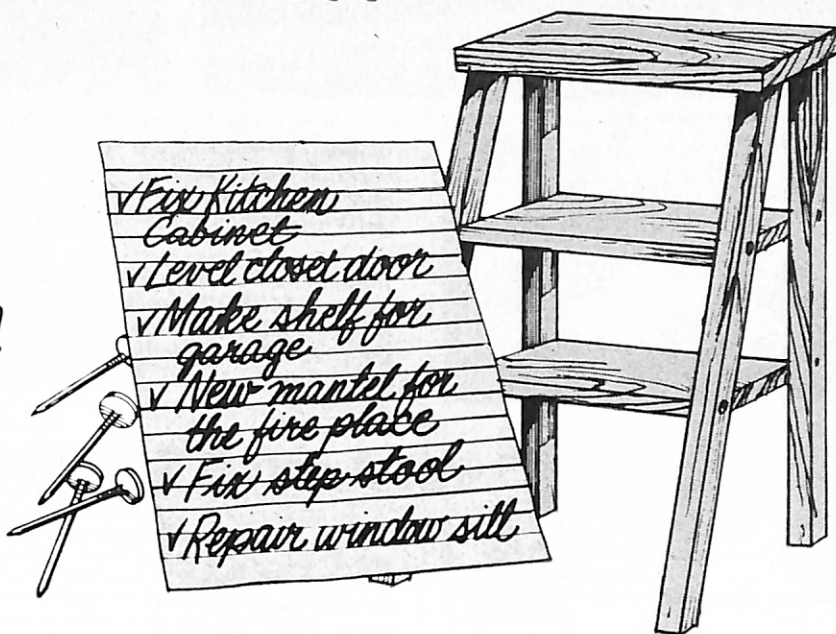 ✓Fix Kitchen
Cabinet
✓Level closet door
✓Make shelf for
garage
✓New mantel for
the fire place
✓Fix step stool
✓Repair window sill